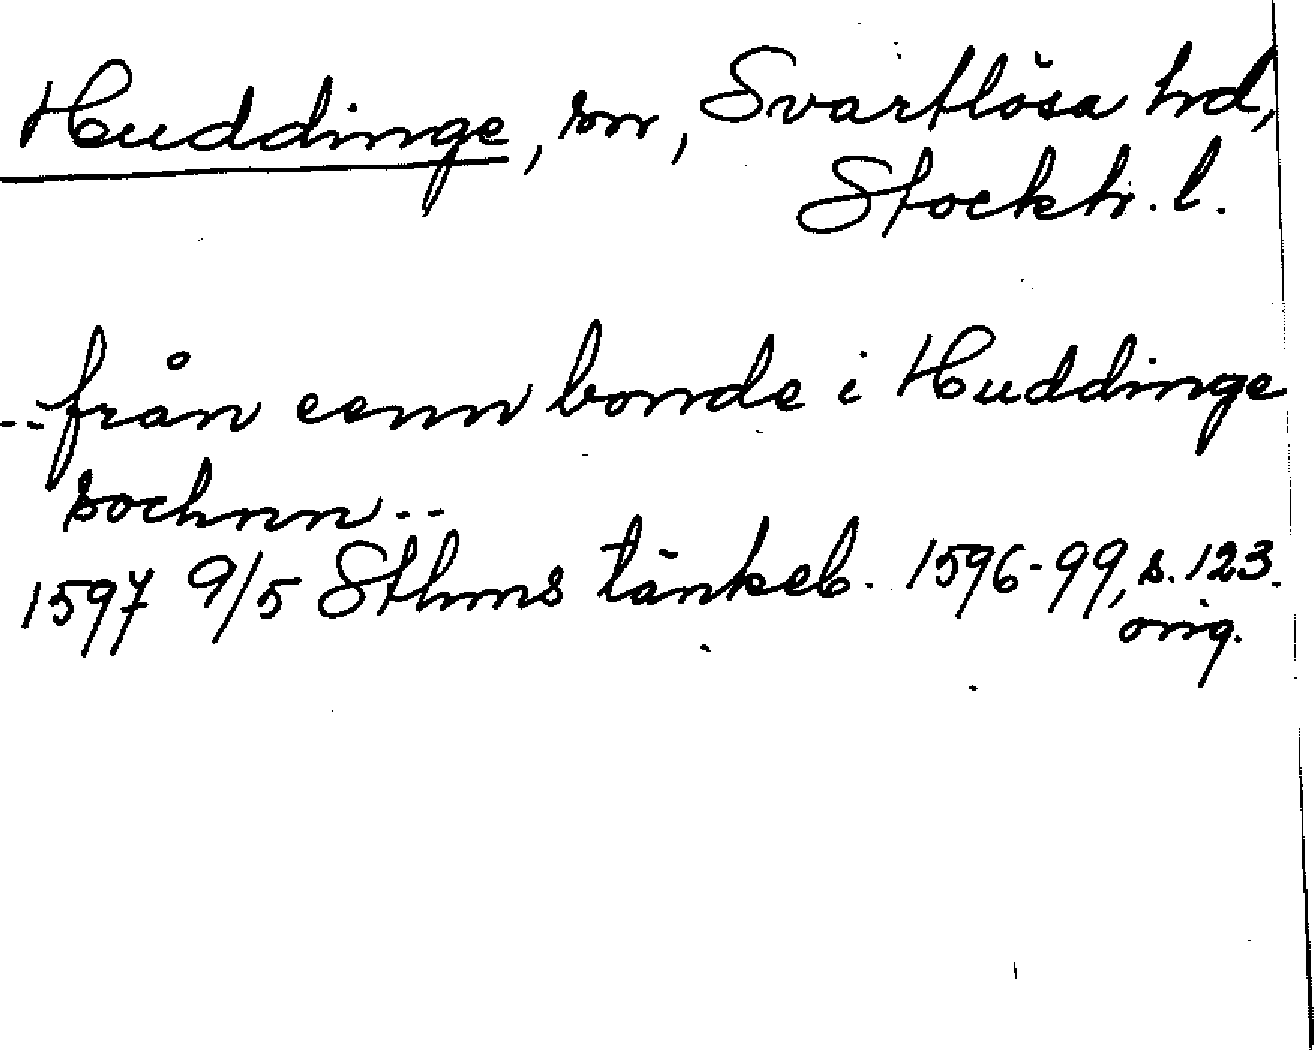 Huddinge, sn, Svartlösa hd,
Stockh. l.
..från eenn bonde i Huddinge
sochnn..
1597 9/5 Sthms tänkeb. 1596-99, s. 123.
orig.